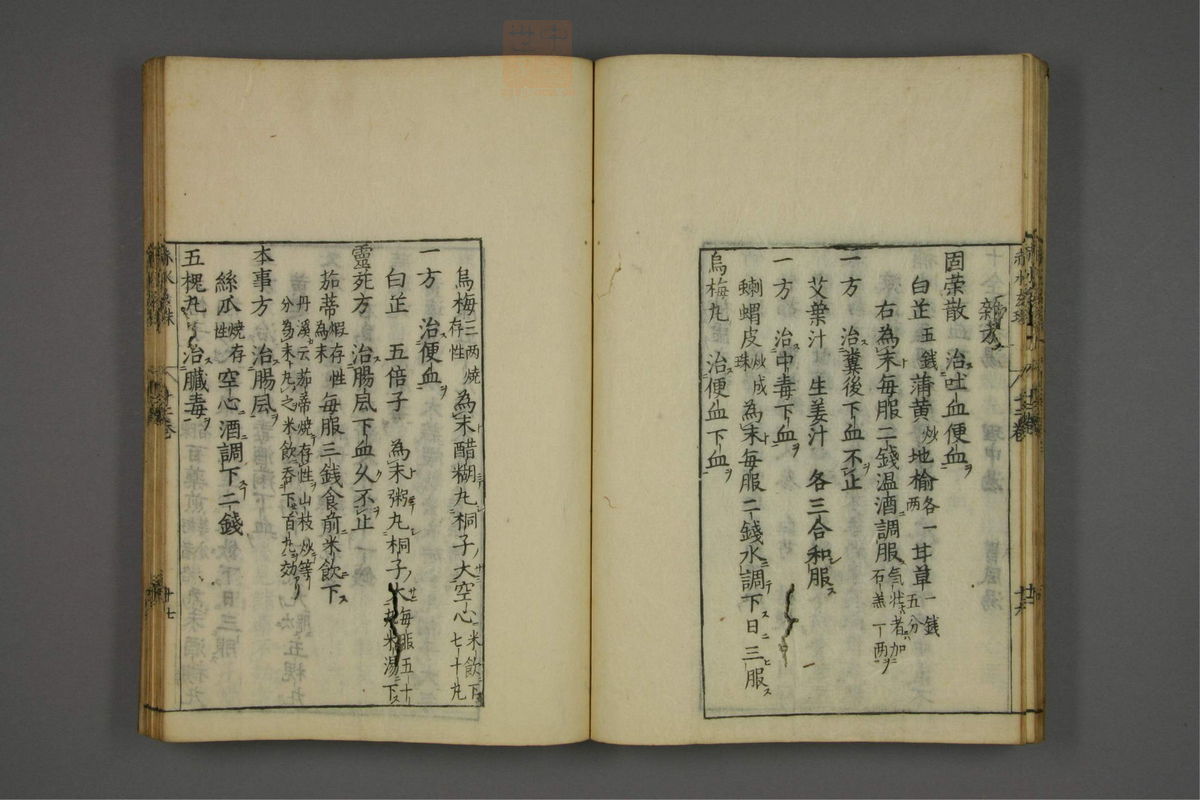 新方
固荣散 治吐血便血
白芷五錢蒲黄炒地榆各一两甘草一錢五分
右為末每服二錢温酒調服氣壮者加石羔一两
一方 治糞後下血不止
艾葉汁 生姜汁 各三合和服
一方 治中毒下血
蝲蝟皮炒成珠為末每服二錢水調下日三服
烏梅丸 治便血下血
烏梅三两燒存性為末醋糊丸桐子大空心米飲下七十丸
一方 治便血
白芷 五倍子 為末粥丸桐子大每服五十丸米湯下
靈苑方 治腸風下血久不止
茄蒂煅存性為末每服三錢食前米飲下
丹溪云茄蒂燒存性山枝炒等分為末丸之米飲吞下百丸効
本事方 治腸風
絲瓜燒存性空心酒調下二錢
五槐丸 治臟毒